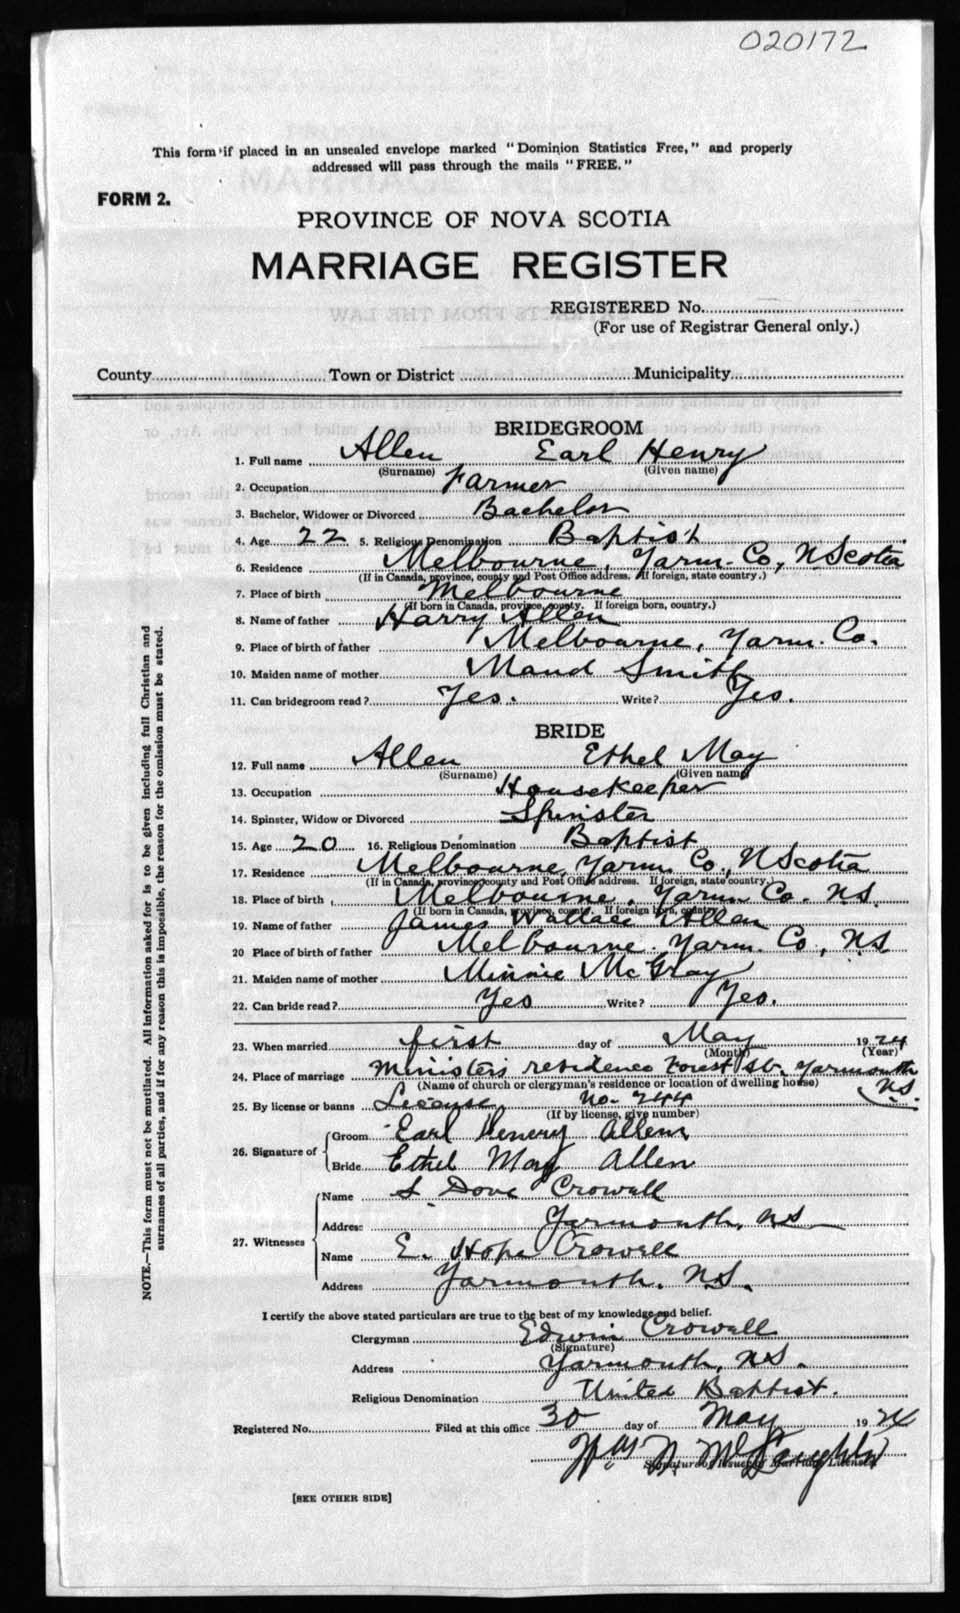 020172
This form if placed in an unsealed envelope marked "Dominion Statistics Free," and properly
addressed will pass through the mails "FREE."
FORM 2.
PROVINCE OF NOVA SCOTIA
MARRIAGE REGISTER
REGISTERED No.
(For use of Registrar General only.)
County Town or District Municipality
BRIDEGROOM
1. Full name Allen Earl Henry
(Surname) (Given name)
2. Occupation Farmer
3. Bachelor, Widower or Divorced Bachelor
4. Age 22 5. Religious Denomination Baptist
6. Residence Melbourne, Yarm. Co, N Scotia
(If in Canada, province, county and Post Office address. If foreign, state country.)
7. Place of birth Melbourne
(If born in Canada, province, county. If foreign born, country.)
8. Name of father Harry Allen
9. Place of birth of father Melbourne, Yarm. Co.
10. Maiden name of mother Maud Smith
11. Can bridegroom read? Yes. Write? Yes.
BRIDE
12. Full name Allen Ethel May
(Surname) (Given name)
13. Occupation Housekeeper
14. Spinster, Widow or Divorced Spinster
15. Age 20 16. Religious Denomination Baptist
17. Residence Melbourne, Yarm. Co., N Scotia
(If in Canada, province, county and Post Office address. If foreign, state country.)
18. Place of birth Melbourne, Yarm Co. N.S.
(If born in Canada, province, county. If foreign born, country.)
19. Name of father James Wallace Allen
20 Place of birth of father Melbourne. Yarm. Co, NS
21. Maiden name of mother Minnie McGray
22. Can bride read? Yes Write? Yes.
23. When married first day of May 1924
(Month) (Year)
24. Place of marriage Ministers residence Forest St. Yarmouth
N.S.
(Name of church or clergyman's residence or location of dwelling house)
25. By license or banns License No. 244
(If by license, give number)
26. Signature of
Groom Earl Henery Allen
Bride Ethel May Allen
27. Witnesses
Name S Dove Crowell
Address Yarmouth, NS
Name E. Hope Crowell
Address Yarmouth. N.S.
I certify the above stated particulars are true to the best of my knowledge and belief.
Clergyman Edwin Crowell
(Signature)
Address Yarmouth, NS.
Religious Denomination United Baptist.
Registered No. Filed at this office 30 day of May 1924
Wm N McLaughlin
Signature of Issuer of Marriage Licenses
[SEE OTHER SIDE]
NOTE.—This form must not be mutilated. All information asked for is to be given including full Christian and
surnames of all parties, and if for any reason this is impossible, the reason for the omission must be stated.